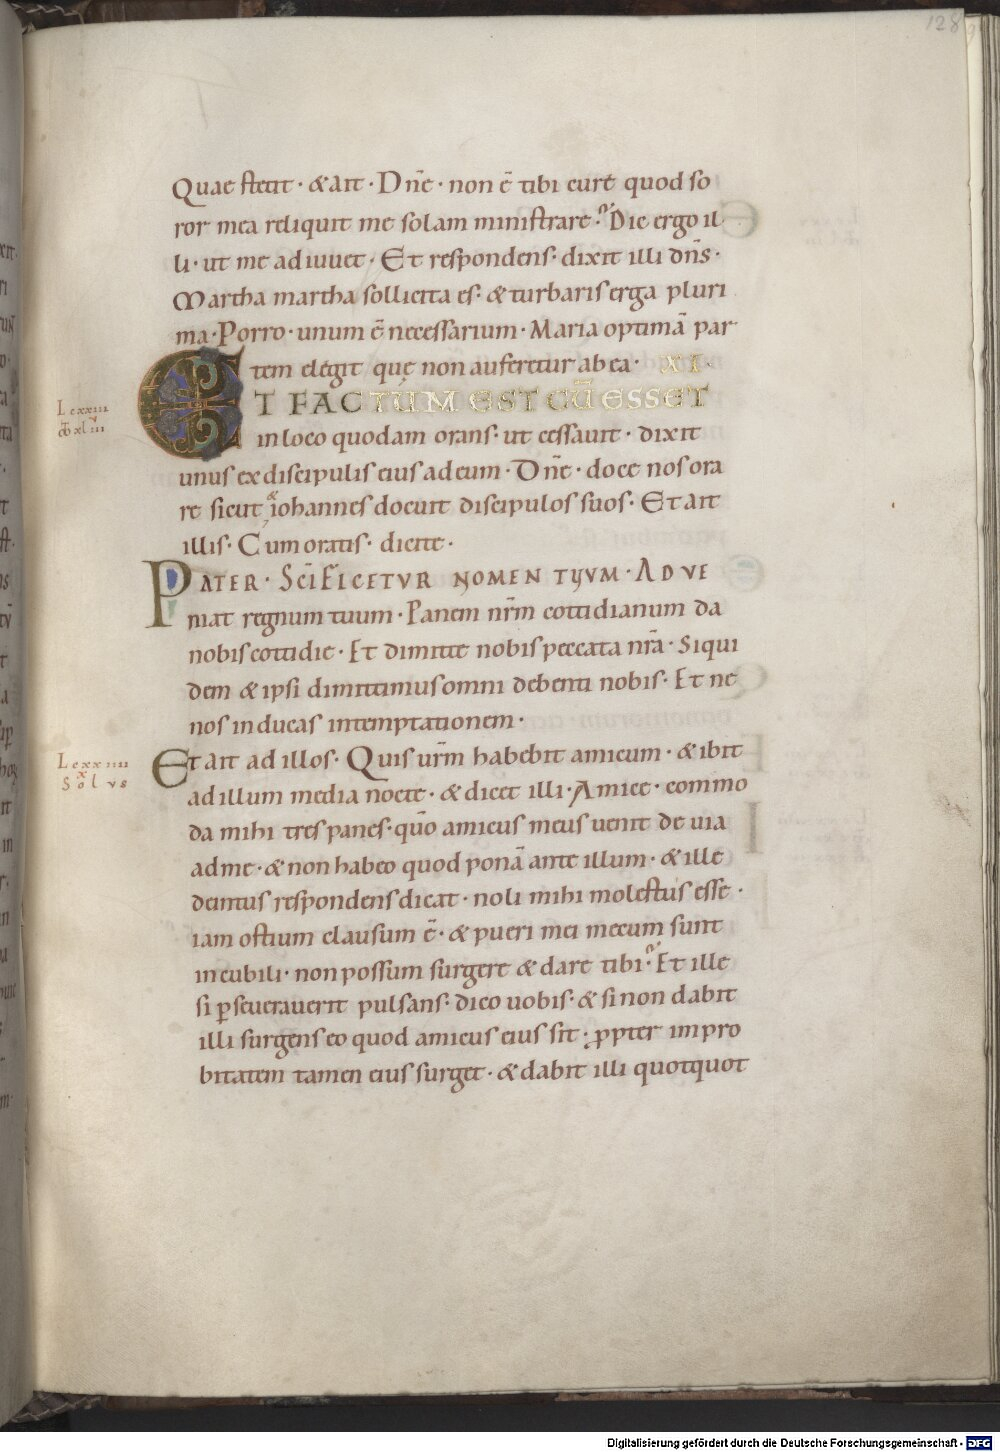 128
Quae stetit · & ait · Dn̄e · non ē tibi curę quod so
ror mea reliquit me solam ministrare · Dic ergo il
li · ut me adiuvet · Et respondens · dixit illi dn̄s ·
Martha martha sollicita es · & turbaris erga pluri
ma · Porro · unum ē necessarium · Maria optimā par
tem elegit quę non auferetur ab ea · XI ·
ET FACTUM EST CŪ ESSET
in loco quodam orans · ut cessavit · dixit
Lc xxiii
xl iii
unus ex discipulis eius ad eum · Dn̄e · doce nos ora
re sicut & iohannes docuit discipulos suos · Et ait
illis · Cum oratis · dicite ·
PATER · SC̄IFICETVR NOMEN TVVM · ADVE
niat regnum tuum · Panem nr̄m cottidianum da
nobis cottidie · Et dimitte nobis peccata nr̄a · Siqui
dem & ipsi dimittimus omni debenti nobis · Et ne
nos inducas in temptationem ·
Et ait ad illos · Quis ur̄m habebit amicum · & ibit
Lc xxiiii
x
Solvs
ad illum media nocte · & dicet illi · Amice · commo
da mihi tres panes · qūo amicus meus venit de via
ad me · & non habeo quod ponā ante illum · & ille
deintus respondens dicat · noli mihi molestus esse ·
iam ostium clausum ē · & pueri mei mecum sunt
in cubili · non possum surgere & dare tibi · Et ille
si p̱severaverit pulsans · dico vobis · & si non dabit
illi surgens eo quod amicus eius sit · p̱pter impro
bitatem tamen eius surget · & dabit illi quotquot
Digitalisierung gefördert durch die Deutsche Forschungsgemeinschaft - DFG